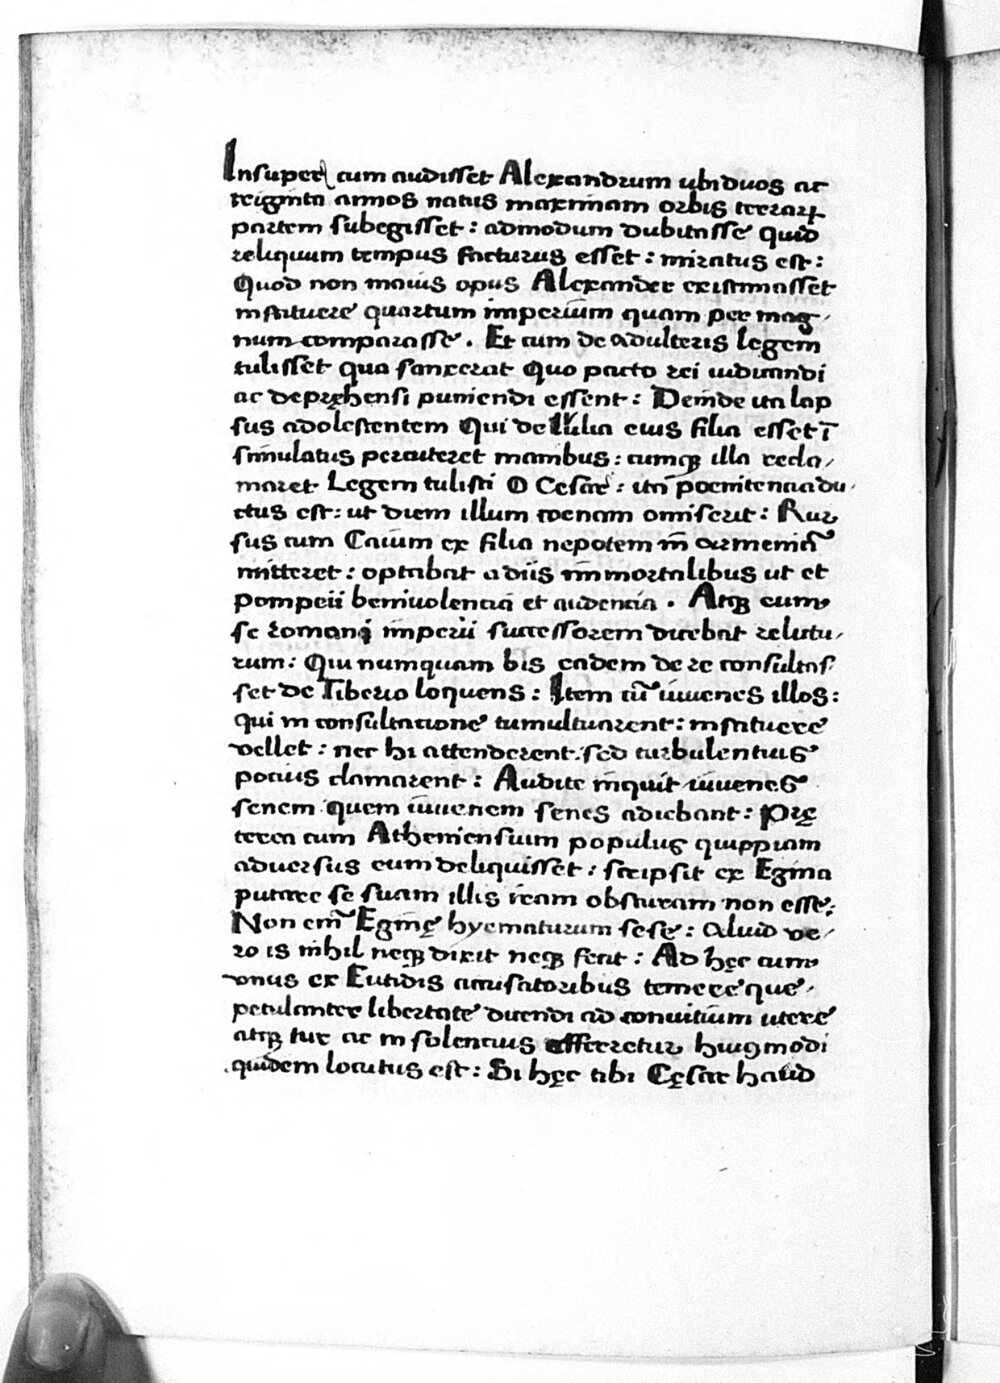 Insuper cum audisset Alexandrum ubi duos ac
triginta annos natus maximam orbis terrarꝝ
partem subegisset : admodum dubitasse quid
reliquum tempus facturus esset : miratus est :
Quod non maius opus Alexander existimasset
instituere quartum imperium quam per mag-
num comparasse . Et cum de adulteris legem
tulisset qua sanxerat Quo pacto rei iudicandi
ac depręhensi puniendi essent : Deinde ita lap
sus adolescentem Qui de Iulia eius filia esset ī
simulatus percuteret manibus : cumqꝫ illa recla-
maret Legem tulisti O Cesar : itā poenitentia du-
ctus est : ut diem illum coenam omiserit : Rur
sus cum Caium ex filia nepotem in armeniā
mitteret : optabat a diis immortalibus ut et
pompeii beniuolencia et audencia . Atqꝫ cum
se romani imperii successorem dicebat relictu-
rum : Qui numquam bis eadem de re consultas
set de Tiberio loquens : Item cū iuvenes illos :
qui in consultatione tumultuarent : instituere
vellet : nec hi attenderent . sed turbulentius
potius clamarent : Audite inquit iuvenes
senem quem iuvenem senes adiebant : Prę
terea cum Atheniensium populus quippiam
adversus eum deliquisset : scripsit ex Egina
putare se suam illis iram obscuram non esse :
Non enī Eginę hyematurum sese : Aluid ve-
ro is nihil neqꝫ dixit neqꝫ fecit : Ad hęc cum
vnus ex Eutidis accusatoribus temere que
petulanter libertate dicendi ad convitium utere
atqꝫ tur ac insolencius efferretur huiꝯmodi
quidem locutus est : Si hęc tibi Cęsar haud